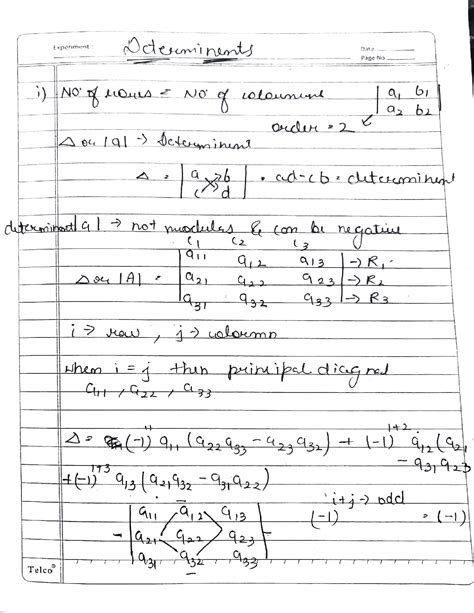 Experiment :
Determinents
Date
Page No.
i) NO of rows = NO of coloumns
| a1 b1 |
| a2 b2 |
order = 2
Δ or |a| → Determinent
Δ = | a b | = ad - cb = determinent
| c d |
determinent |a| → not modulas & can be negative
C1 C2 C3
| a11 a12 a13 | → R1
Δ or |A| = | a21 a22 a23 | → R2
| a31 a32 a33 | → R3
i → row , j → coloumn
when i = j then principal diagnal
a11 , a22 , a33
Δ = (-1)^11 a11 (a22a33 - a23a32) + (-1)^1+2 a12 (a21
- a31a23
+(-1)^1+3 a13 (a21a32 - a31a22)
i+j → odd
(-1) = (-1)
| a11 a12 a13 |
- | a21 a22 a23 | -
| a31 a32 a33 |
Telco